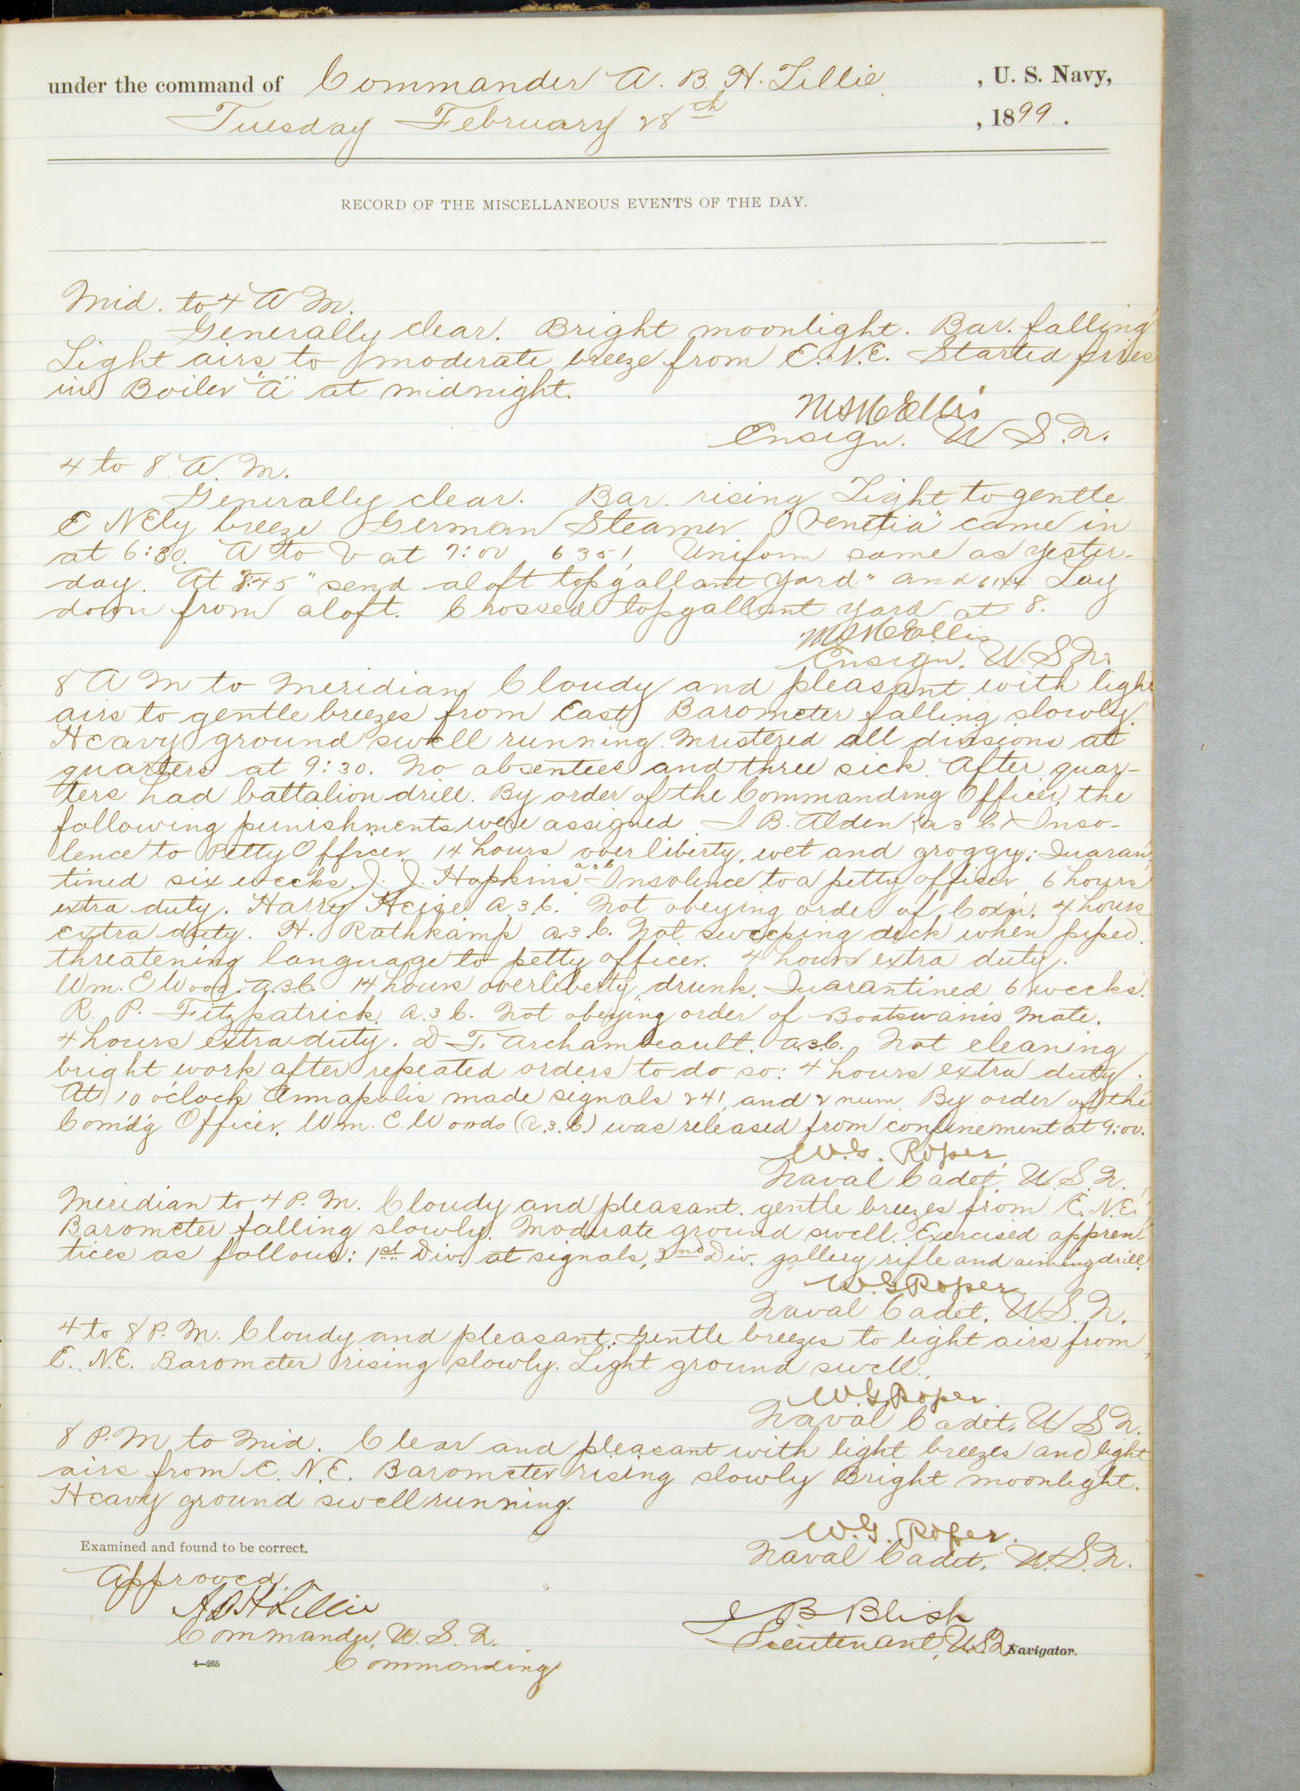 under the command of Commander A. B. H. Lillie, U. S. Navy,
Tuesday February 28th, 1899.
RECORD OF THE MISCELLANEOUS EVENTS OF THE DAY.
Mid. to 4 A M.
Generally clear. Bright moonlight. Bar. falling
Light airs to moderate breeze from E. N. E. Started fires
in Boiler "A" at midnight.
Ellis
Ensign. U S. N.
4 to 8 A. M.
Generally clear. Bar. rising Light to gentle
E NEly breeze German Steamer "Venetia" came in
at 6:30. A to V at 7:00 635! Uniform same as yester-
day. At "send aloft topgallant yard" and Lay
down from aloft. Crossed topgallant yard at 8.
Ellis
Ensign. U. S. N.
8 A M to Meridian Cloudy and pleasant with light
airs to gentle breezes from East) Barometer falling slowly.
Heavy ground swell running. Mustered all divisions at
quarters at 9:30. No absentees and three sick. After quar-
ters had battalion drill. By order of the Commanding Officer, the
following punishments were assigned I B. Alden (a 3 c) Inso-
lence to Petty Officer 14 hours overliberty, wet and groggy; Quaran-
tined six weeks. J. J. Hopkins a.3.c. Insolence to a petty officer, 6 hours
extra duty. Harry a.3.c. Not obeying order of Coxn. 4 hours
extra duty. H. Rathkamp a.3 c. Not sweeping deck when piped.
threatening language to petty officer. 4 hours extra duty.
Wm. E Wood. a.3.c. 14 hours overliberty, drunk. Quarantined 6 weeks.
R. P. Fitzpatrick, a.3 c. Not obeying order of Boatswain's Mate.
4 hours extra duty. D T. Archambeault. a.3.c. Not cleaning
bright work after repeated orders to do so: 4 hours extra duty.
At 10 o'clock Annapolis made signals 241 and 2 num. By order of the
Com'd'g Officer, Wm. E. Woods (a.3.c.) was released from confinement at 9:00.
W. G. Roper,
Naval Cadet, U. S. N.
Meridian to 4 P. M. Cloudy and pleasant. gentle breezes from E. N. E.
Barometer falling slowly. Moderate ground swell. Exercised appren-
tices as follows: 1st Div. at signals, 2nd Div. gallery rifle and aiming drill.
W. G Roper
Naval Cadet, U. S. N.
4 to 8 P. M. Cloudy and pleasant. Gentle breezes to light airs from
E. N. E. Barometer rising slowly. Light ground swell.
W. G Roper.
Naval Cadet, U S N.
8 P. M to Mid. Clear and pleasant with light breezes and light
airs from E. N. E. Barometer rising slowly Bright moonlight.
Heavy ground swell running.
W. G. Roper.
Naval Cadet, U. S. N.
Examined and found to be correct.
Approved.
A B H Lillie
Commander, U. S. N.
Commanding
J B Blish
Lieutenant, U S N. Navigator.
4—265